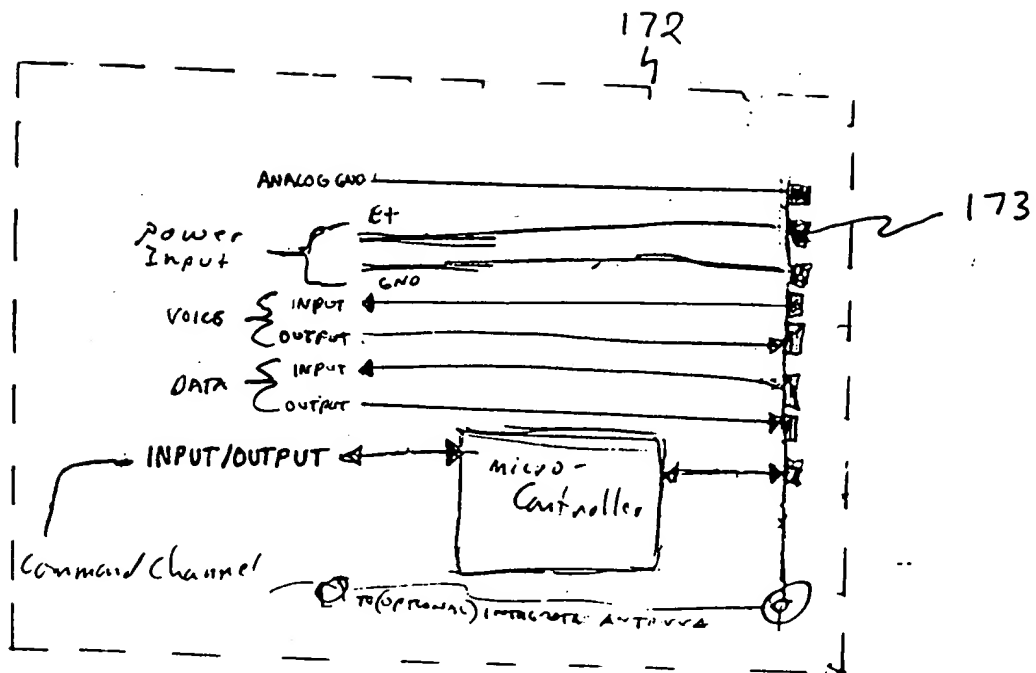 172
ANALOG GND
173
E+
Power
Input
GND
VOICE
INPUT
OUTPUT
DATA
INPUT
OUTPUT
INPUT/OUTPUT
Micro-
Controller
Command Channel
TO (OPTIONAL) INTEGRATE ANTENNA